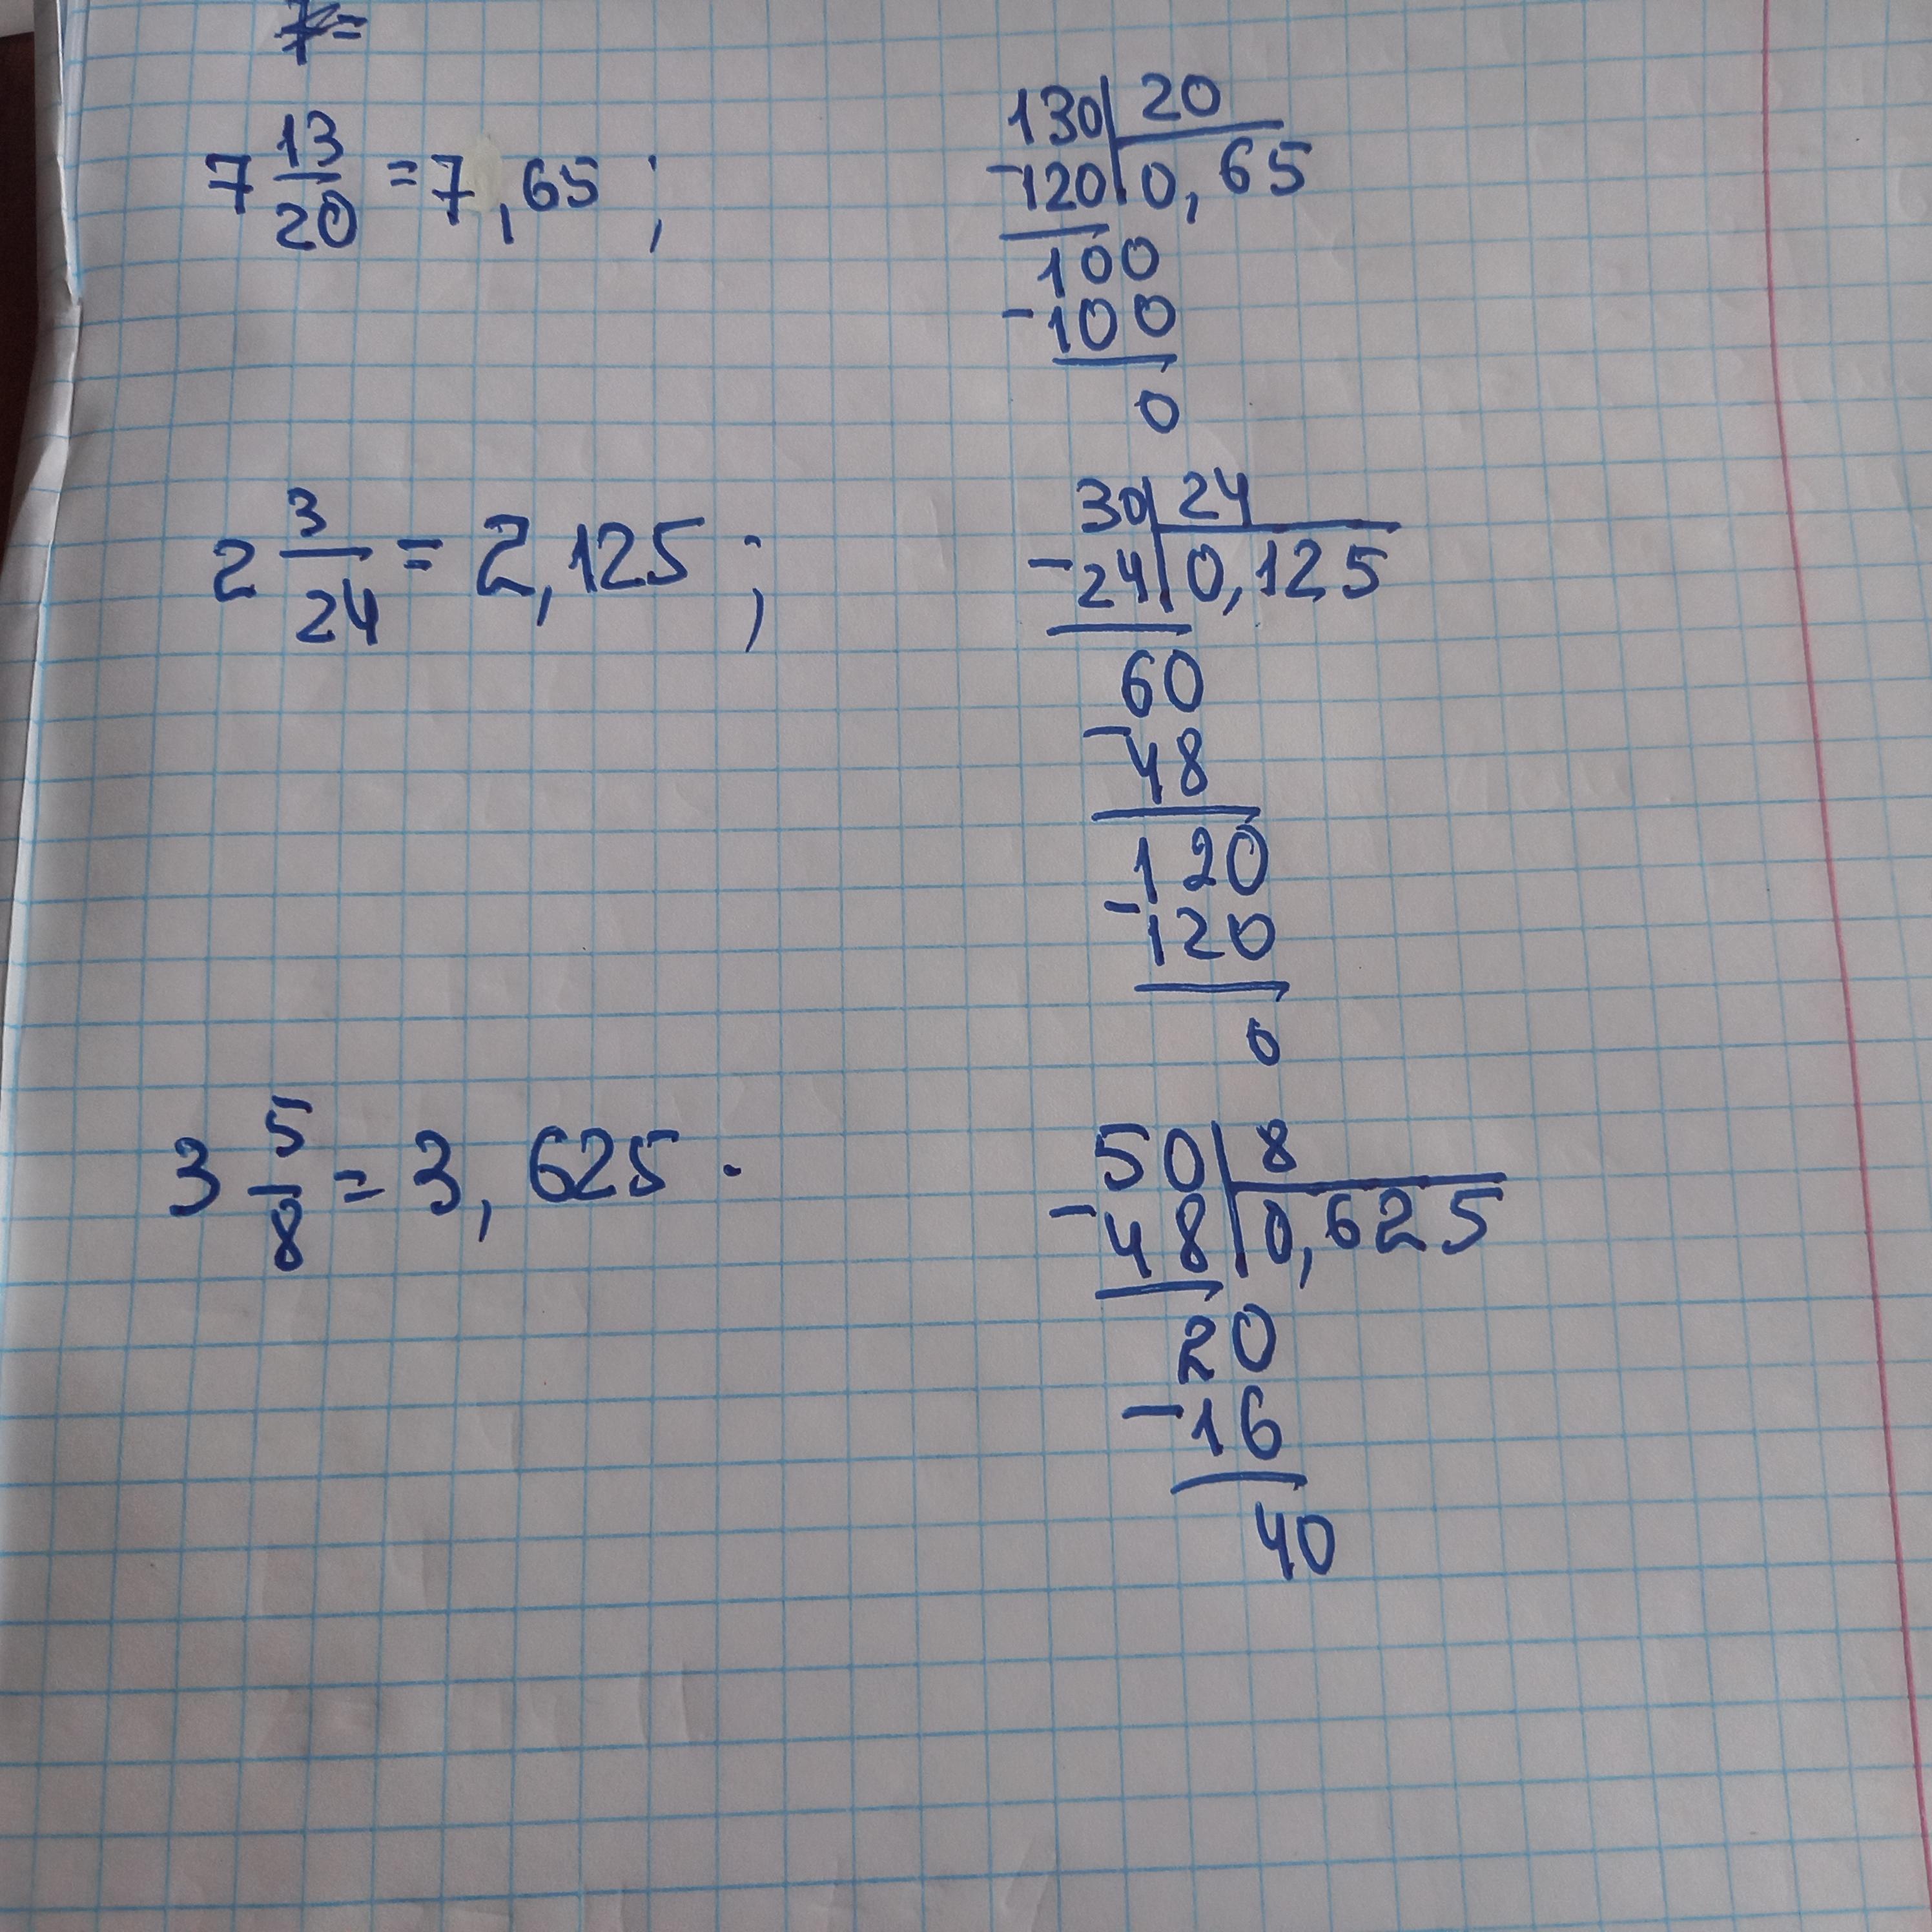 7 13/20 = 7,65 ;
130 | 20
-120 | 0,65
100
-100
0
2 3/24 = 2,125 ;
30 | 24
-24 | 0,125
60
-48
120
-120
0
3 5/8 = 3,625 .
50 | 8
-48 | 0,625
20
-16
40